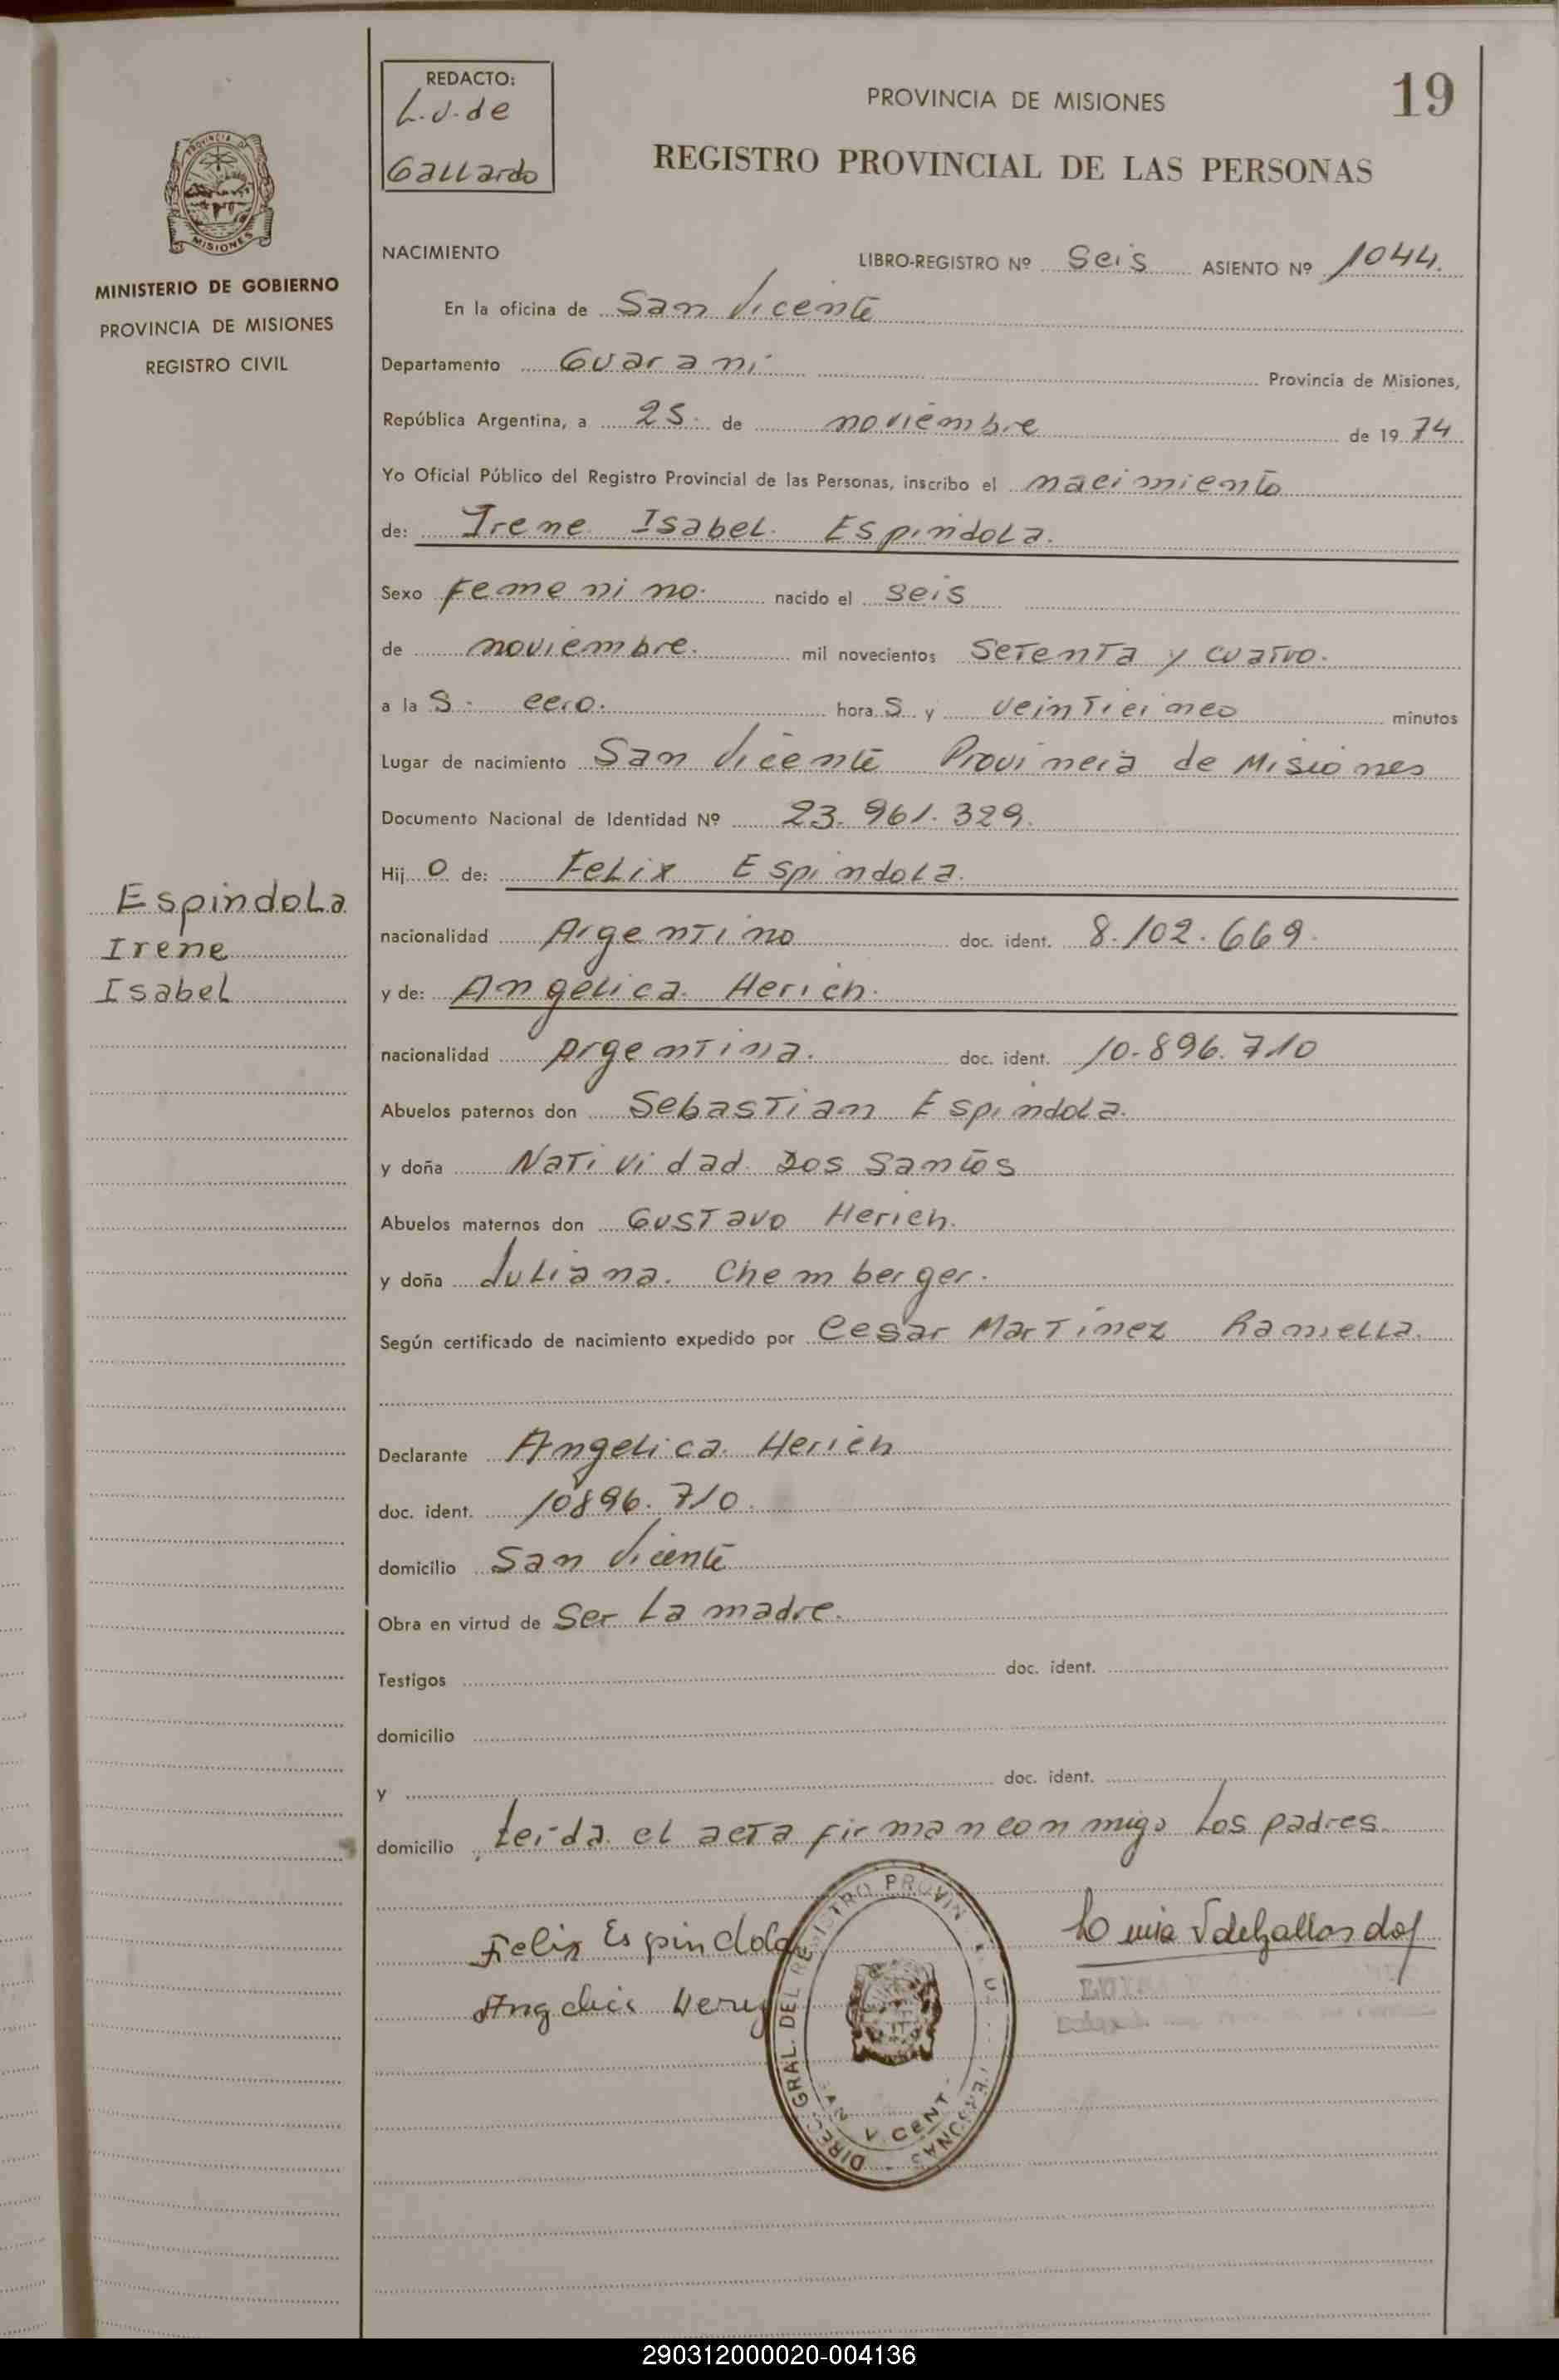 REDACTO:
L.V. de
Gallardo
PROVINCIA DE MISIONES
19
REGISTRO PROVINCIAL DE LAS PERSONAS
PROVINCIA DE
MISIONES
MINISTERIO DE GOBIERNO
PROVINCIA DE MISIONES
REGISTRO CIVIL
NACIMIENTO LIBRO-REGISTRO Nº Seis ASIENTO Nº 1044.
En la oficina de San Vicente
Departamento Guarani Provincia de Misiones,
República Argentina, a 25. de noviembre de 1974
Yo Oficial Público del Registro Provincial de las Personas, inscribo el nacimiento
de: Irene Isabel Espindola.
Sexo Femenino. nacido el seis
de noviembre. mil novecientos Setenta y cuatro.
a la S. cero. hora S y veinticinco minutos
Lugar de nacimiento San Vicente Provincia de Misiones
Documento Nacional de Identidad Nº 23.961.329.
Hij o de: Felix Espindola.
nacionalidad Argentino doc. ident. 8.102.669.
y de: Angelica Herich.
nacionalidad Argentina. doc. ident. 10.896.710
Abuelos paternos don Sebastian Espindola.
y doña Natividad Dos Santos
Abuelos maternos don Gustavo Herich.
y doña Juliana. Chemberger.
Según certificado de nacimiento expedido por Cesar Martinez Ramella.
Espindola
Irene
Isabel
Declarante Angelica Herich
doc. ident. 10896.710.
domicilio San Vicente
Obra en virtud de Ser La madre.
Testigos doc. ident.
domicilio
y doc. ident.
domicilio Leida el acta firman conmigo Los padres.
Felix Espindola
Angelica
DIREC. GRAL. DEL REGISTRO PROVIN
VICENT
290312000020-004136